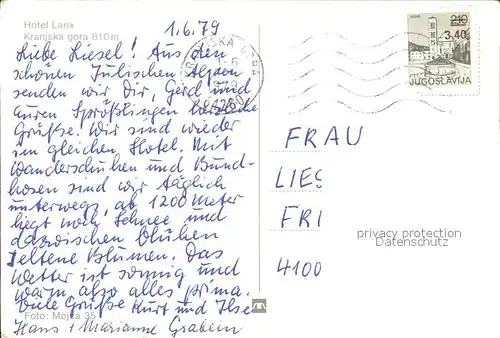 Hotel Larix
Kranjska gora 810m
1.6.79
Liebe Liesel! Aus den
schönen Julischen Alpen
senden wir Dir, Gerd und
Euren Sprößlingen herzliche
Grüße. Wir sind wieder
im gleichen Hotel. Mit
Wanderschuhen und Bund-
hosen sind wir täglich
unterwegs, ab 1200 Meter
liegt noch Schnee und
dazwischen blühen
seltene Blumen. Das
Wetter ist sonnig und
warm also alles prima.
Viele Grüße Kurt und Ilse
Foto: Mojca 35
Hans + Marianne
KRANJSKA GORA
2.10
3,40
JUGOSLAVIJA
FRAU
LIES
FRI
privacy protection
Datenschutz
4100